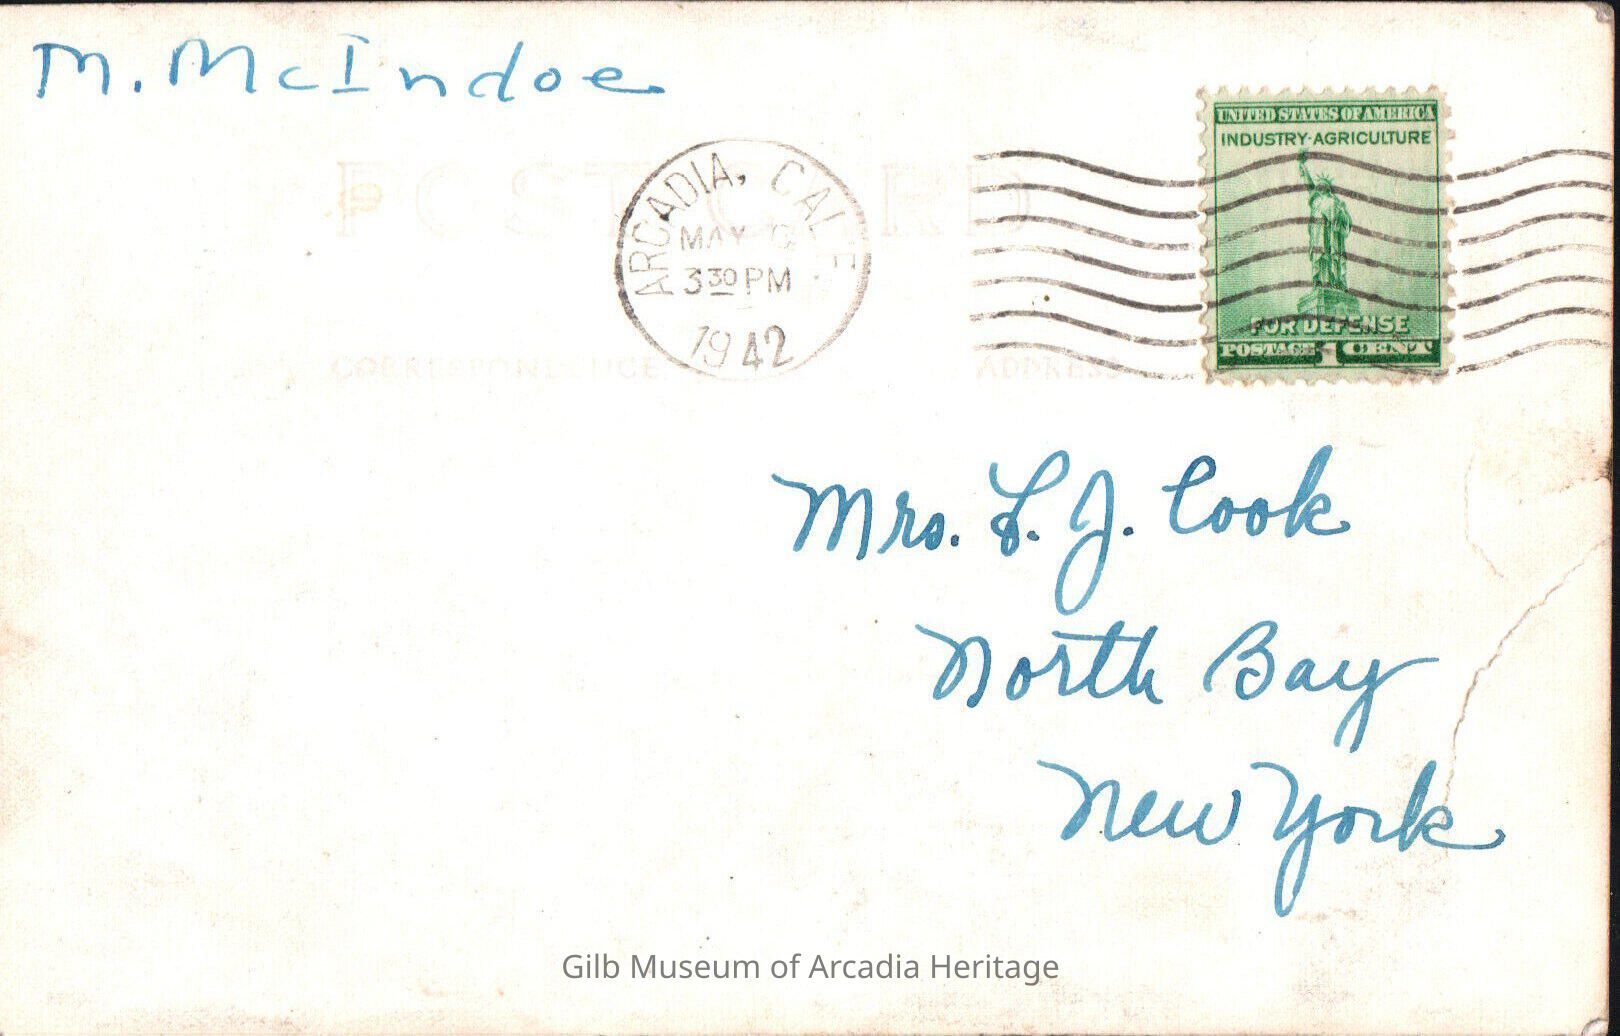 M. McIndoe
POST CARD
ARCADIA, CALIF.
MAY
3 30 PM
1942
UNITED STATES OF AMERICA
INDUSTRY-AGRICULTURE
FOR DEFENSE
POSTAGE 1 CENT
CORRESPONDENCE
ADDRESS
Mrs. L. J. Cook
North Bay
New York
Gilb Museum of Arcadia Heritage